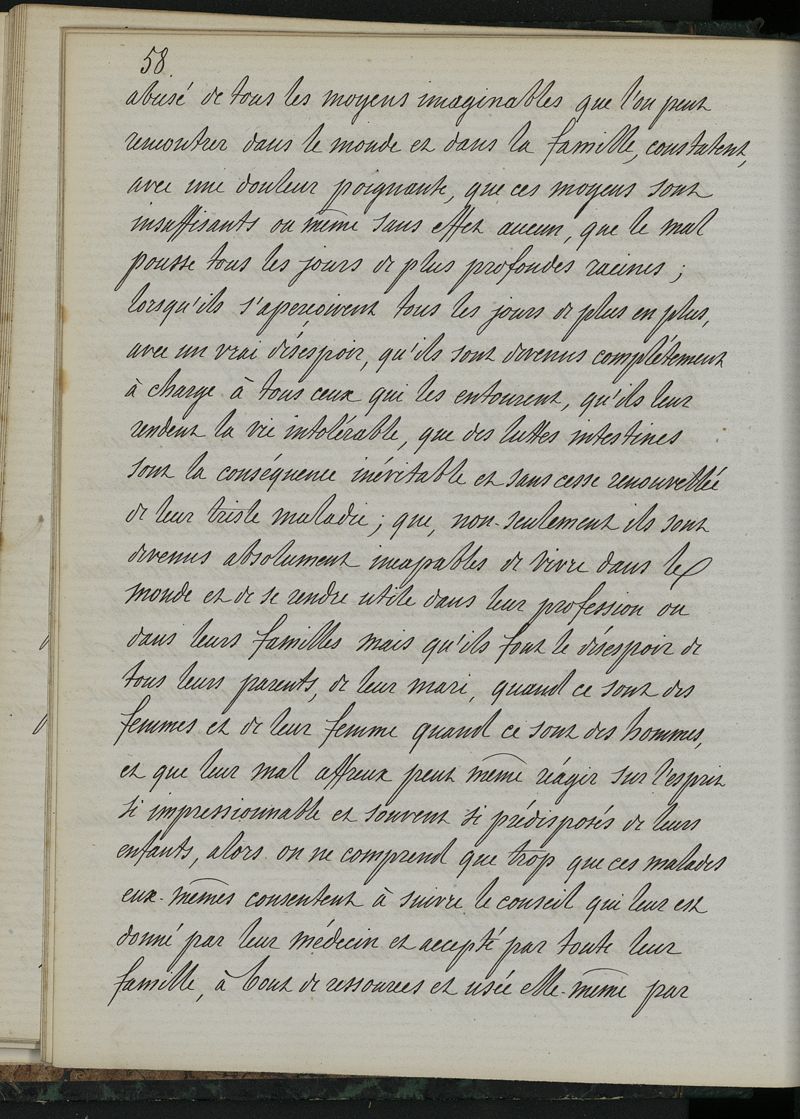 58.
abusé de tous les moyens imaginables que l'on peut
rencontrer dans le monde et dans la famille, constatent,
avec une douleur poignante, que ces moyens sont
insuffisants ou même sans effet aucun, que le mal
pousse tous les jours de plus profondes racines ;
lorsqu'ils s'aperçoivent tous les jours de plus en plus,
avec un vrai désespoir, qu'ils sont devenus complétement
à charge à tous ceux qui les entourent, qu'ils leur
rendent la vie intolérable, que des luttes intestines
sont la conséquence inévitable et sans cesse renouvellée
de leur triste maladie ; que, non-seulement ils sont
devenus absolument incapables de vivre dans le
monde et de se rendre utile dans leur profession ou
dans leurs familles mais qu'ils font le désespoir de
tous leurs parents, de leur mari, quand ce sont des
femmes et de leur femme quand ce sont des hommes,
et que leur mal affreux peut même réagir sur l'esprit
si impressionnable et souvent si prédisposés de leurs
enfants, alors on ne comprend que trop que ces malades
eux-mêmes consentent à suivre le conseil qui leur est
donné par leur médecin et accepté par toute leur
famille, à bout de ressources et usée elle-même par